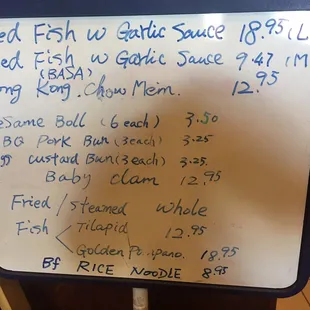 ed Fish w Garlic Sauce 18.95 (L
ed Fish w Garlic Sauce 9.47 (M
(BASA)
ng Kong. Chow Mein. 12.95
eSame Ball (6 each) 3.50
BQ Pork Bun (3 each) 3.25
gg custard Bun (3 each) 3.25.
Baby clam 12.95
Fried / Steamed whole
Fish < Tilapid 12.95
Golden Po..ipano. 18.95
Bf RICE NOODLE 8.95